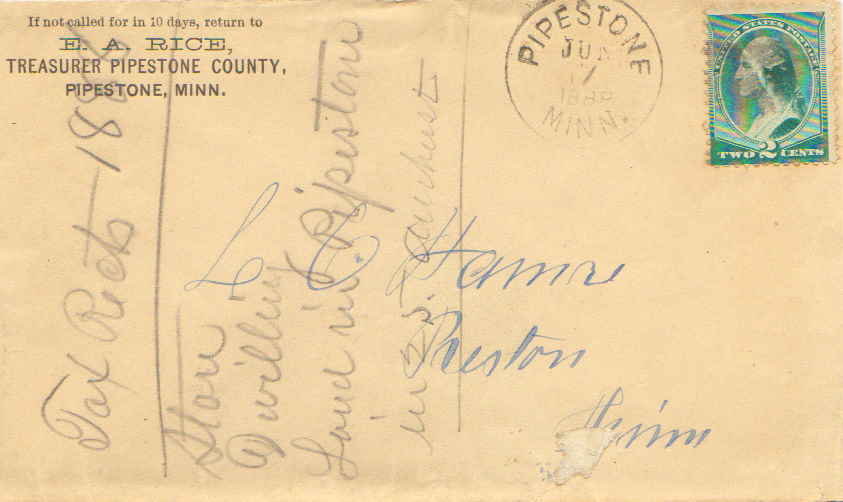 If not called for in 10 days, return to
E. A. RICE,
TREASURER PIPESTONE COUNTY,
PIPESTONE, MINN.
PIPESTONE
JUN
17
MINN.
UNITED STATES POSTAGE
TWO 2 CENTS
L C Hamre
Preston
Minn
Tax Rects 188
Store
Dwelling
Land in Pipestone
in 25.